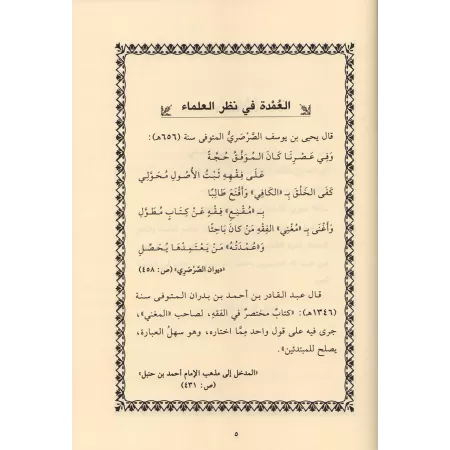 العُمْدة في نظر العلماء
قال يحيى بن يوسف الصَّرْصَرِيُّ المتوفى سنة (٦٥٦هـ):
وَفِي عَصْرِنَا كَانَ الـمُوَفَّقُ حُجَّةً
عَلَى فِقْهِهِ ثَبْتُ الأُصُولِ مُحَوَّلِي
كَفَى الخَلْقَ بِـ «الكَافِي» وَأَقْنَعَ طَالِبًا
بِـ «مُقْنِعِ» فِقْهٍ عَنْ كِتَابٍ مُطَوَّلِ
وَأَغْنَى بِـ «مُغْنِي» الفِقْهِ مَنْ كَانَ بَاحِثًا
وَ«عُمْدَتُهُ» مَنْ يَعْتَمِدْهَا يُحَصِّلِ
«ديوان الصَّرْصَرِي» (ص: ٤٥٨)
قال عبد القادر بن أحمد بن بدران المتوفى سنة
(١٣٤٦هـ): «كتابٌ مختصرٌ في الفقهِ، لصاحب «المغني»،
جرى فيه على قول واحد مِمَّا اختاره، وهو سهلُ العبارة،
يصلح للمبتدئين».
«المدخل إلى مذهب الإمام أحمد بن حنبل»
(ص: ٤٣١)
٥